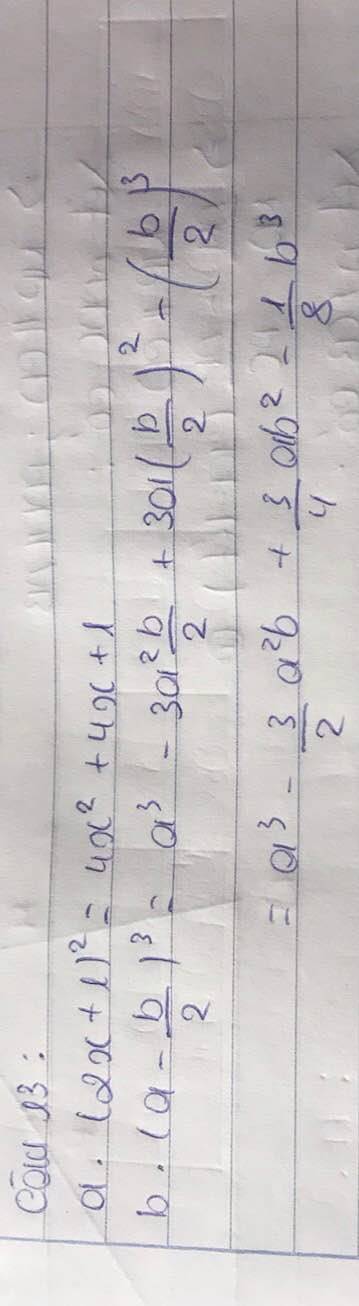 Câu 13:
a. (2x+1)² = 4x² + 4x + 1
b. (a - b/2)³ = a³ - 3a² b/2 + 3a(b/2)² - (b/2)³
= a³ - 3/2 a²b + 3/4 ab² - 1/8 b³